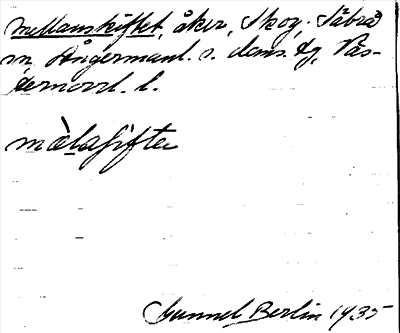 Mellanskiftet, åker, Skog, Säbrå
sn, Ångermanl. s. doms. tg, Väs-
ternorrl. l.
mὲlaʃiftɛ
Gunnel Berlin 1935